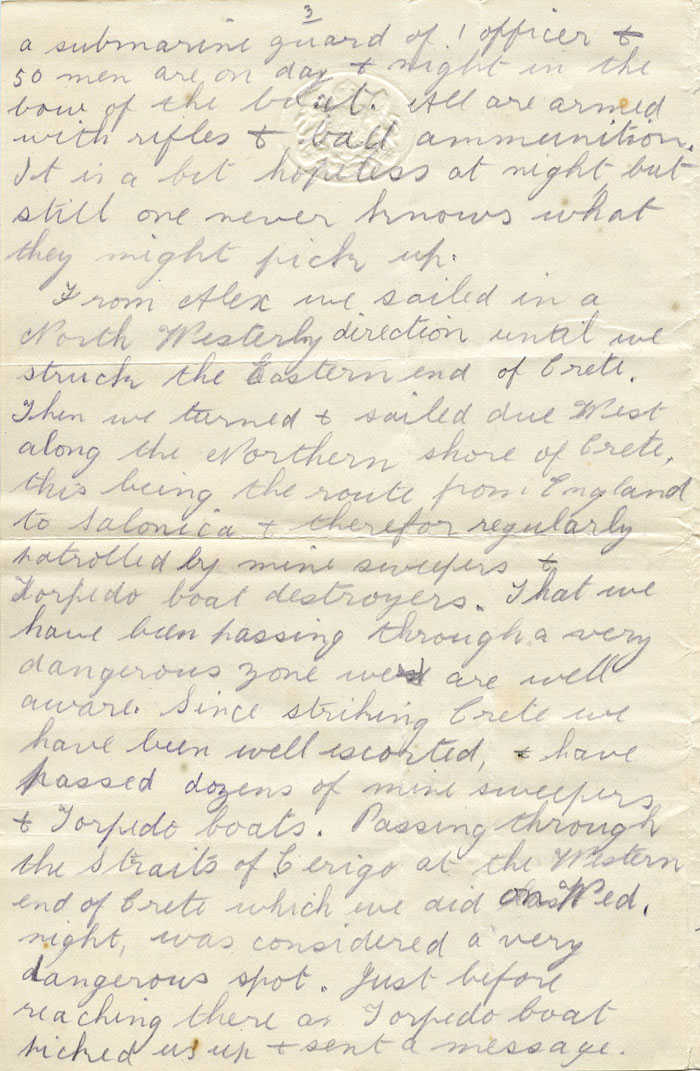 3
a submarine guard of 1 officer &
50 men are on day & night in the
bow of the boat. All are armed
with rifles & ball ammunition.
It is a bit hopeless at night, but
still one never knows what
they might pick up.
From Alex we sailed in a
North Westerly direction until we
struck the Eastern end of Crete.
Then we turned & sailed due West
along the Northern shore of Crete,
this being the route from England
to Salonica & therefor regularly
patrolled by mine sweepers &
Torpedo boat destroyers. That we
have been passing through a very
dangerous zone we are well
aware. Since striking Crete we
have been well escorted, & have
passed dozens of mine sweepers
& Torpedo boats. Passing through
the Straits of Cerigo at the Western
end of Crete which we did on Wed.
night, was considered a very
dangerous spot. Just before
reaching there a Torpedo boat
picked us up & sent a message.